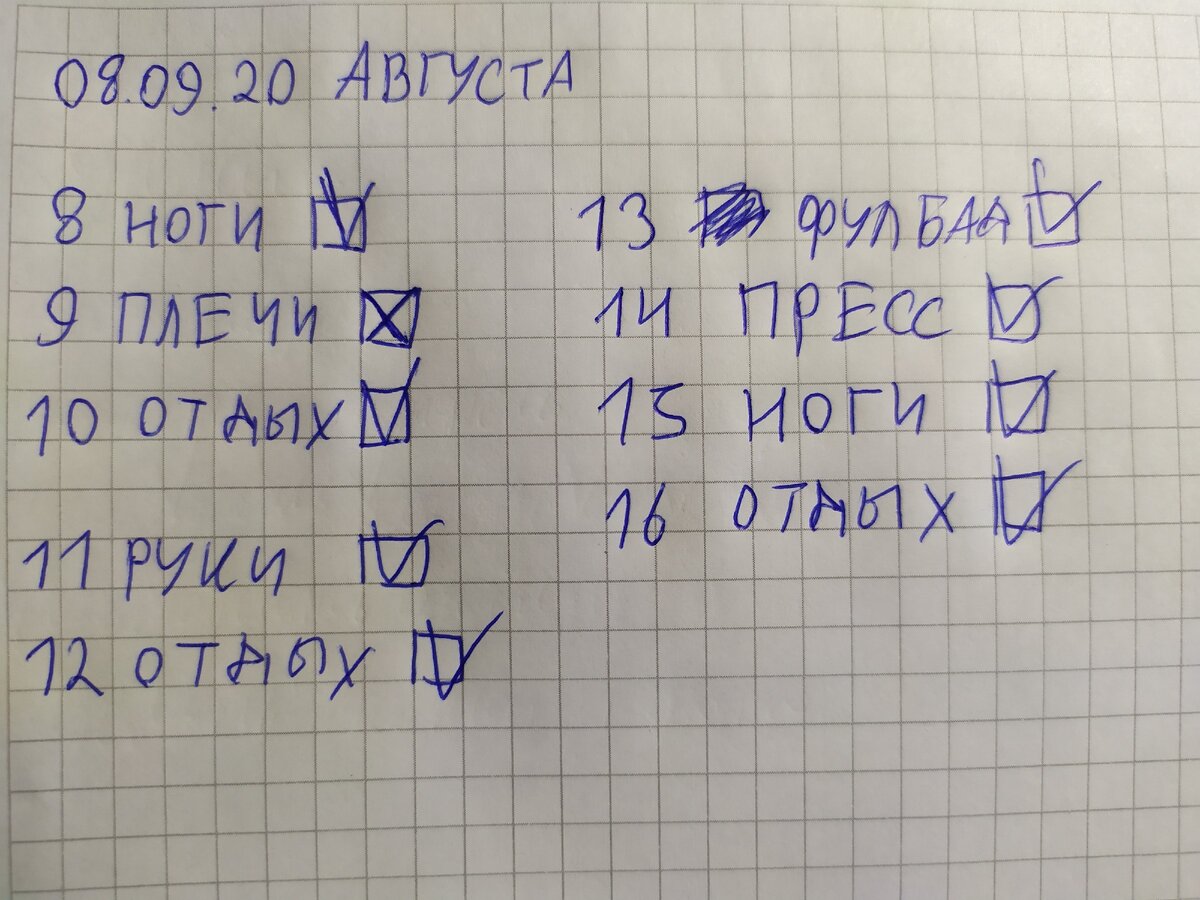 08.09.20 АВГУСТА
8 НОГИ
9 ПЛЕЧИ
10 ОТДЫХ
11 РУКИ
12 ОТДЫХ
13 ФУЛБАДИ
14 ПРЕСС
15 НОГИ
16 ОТДЫХ